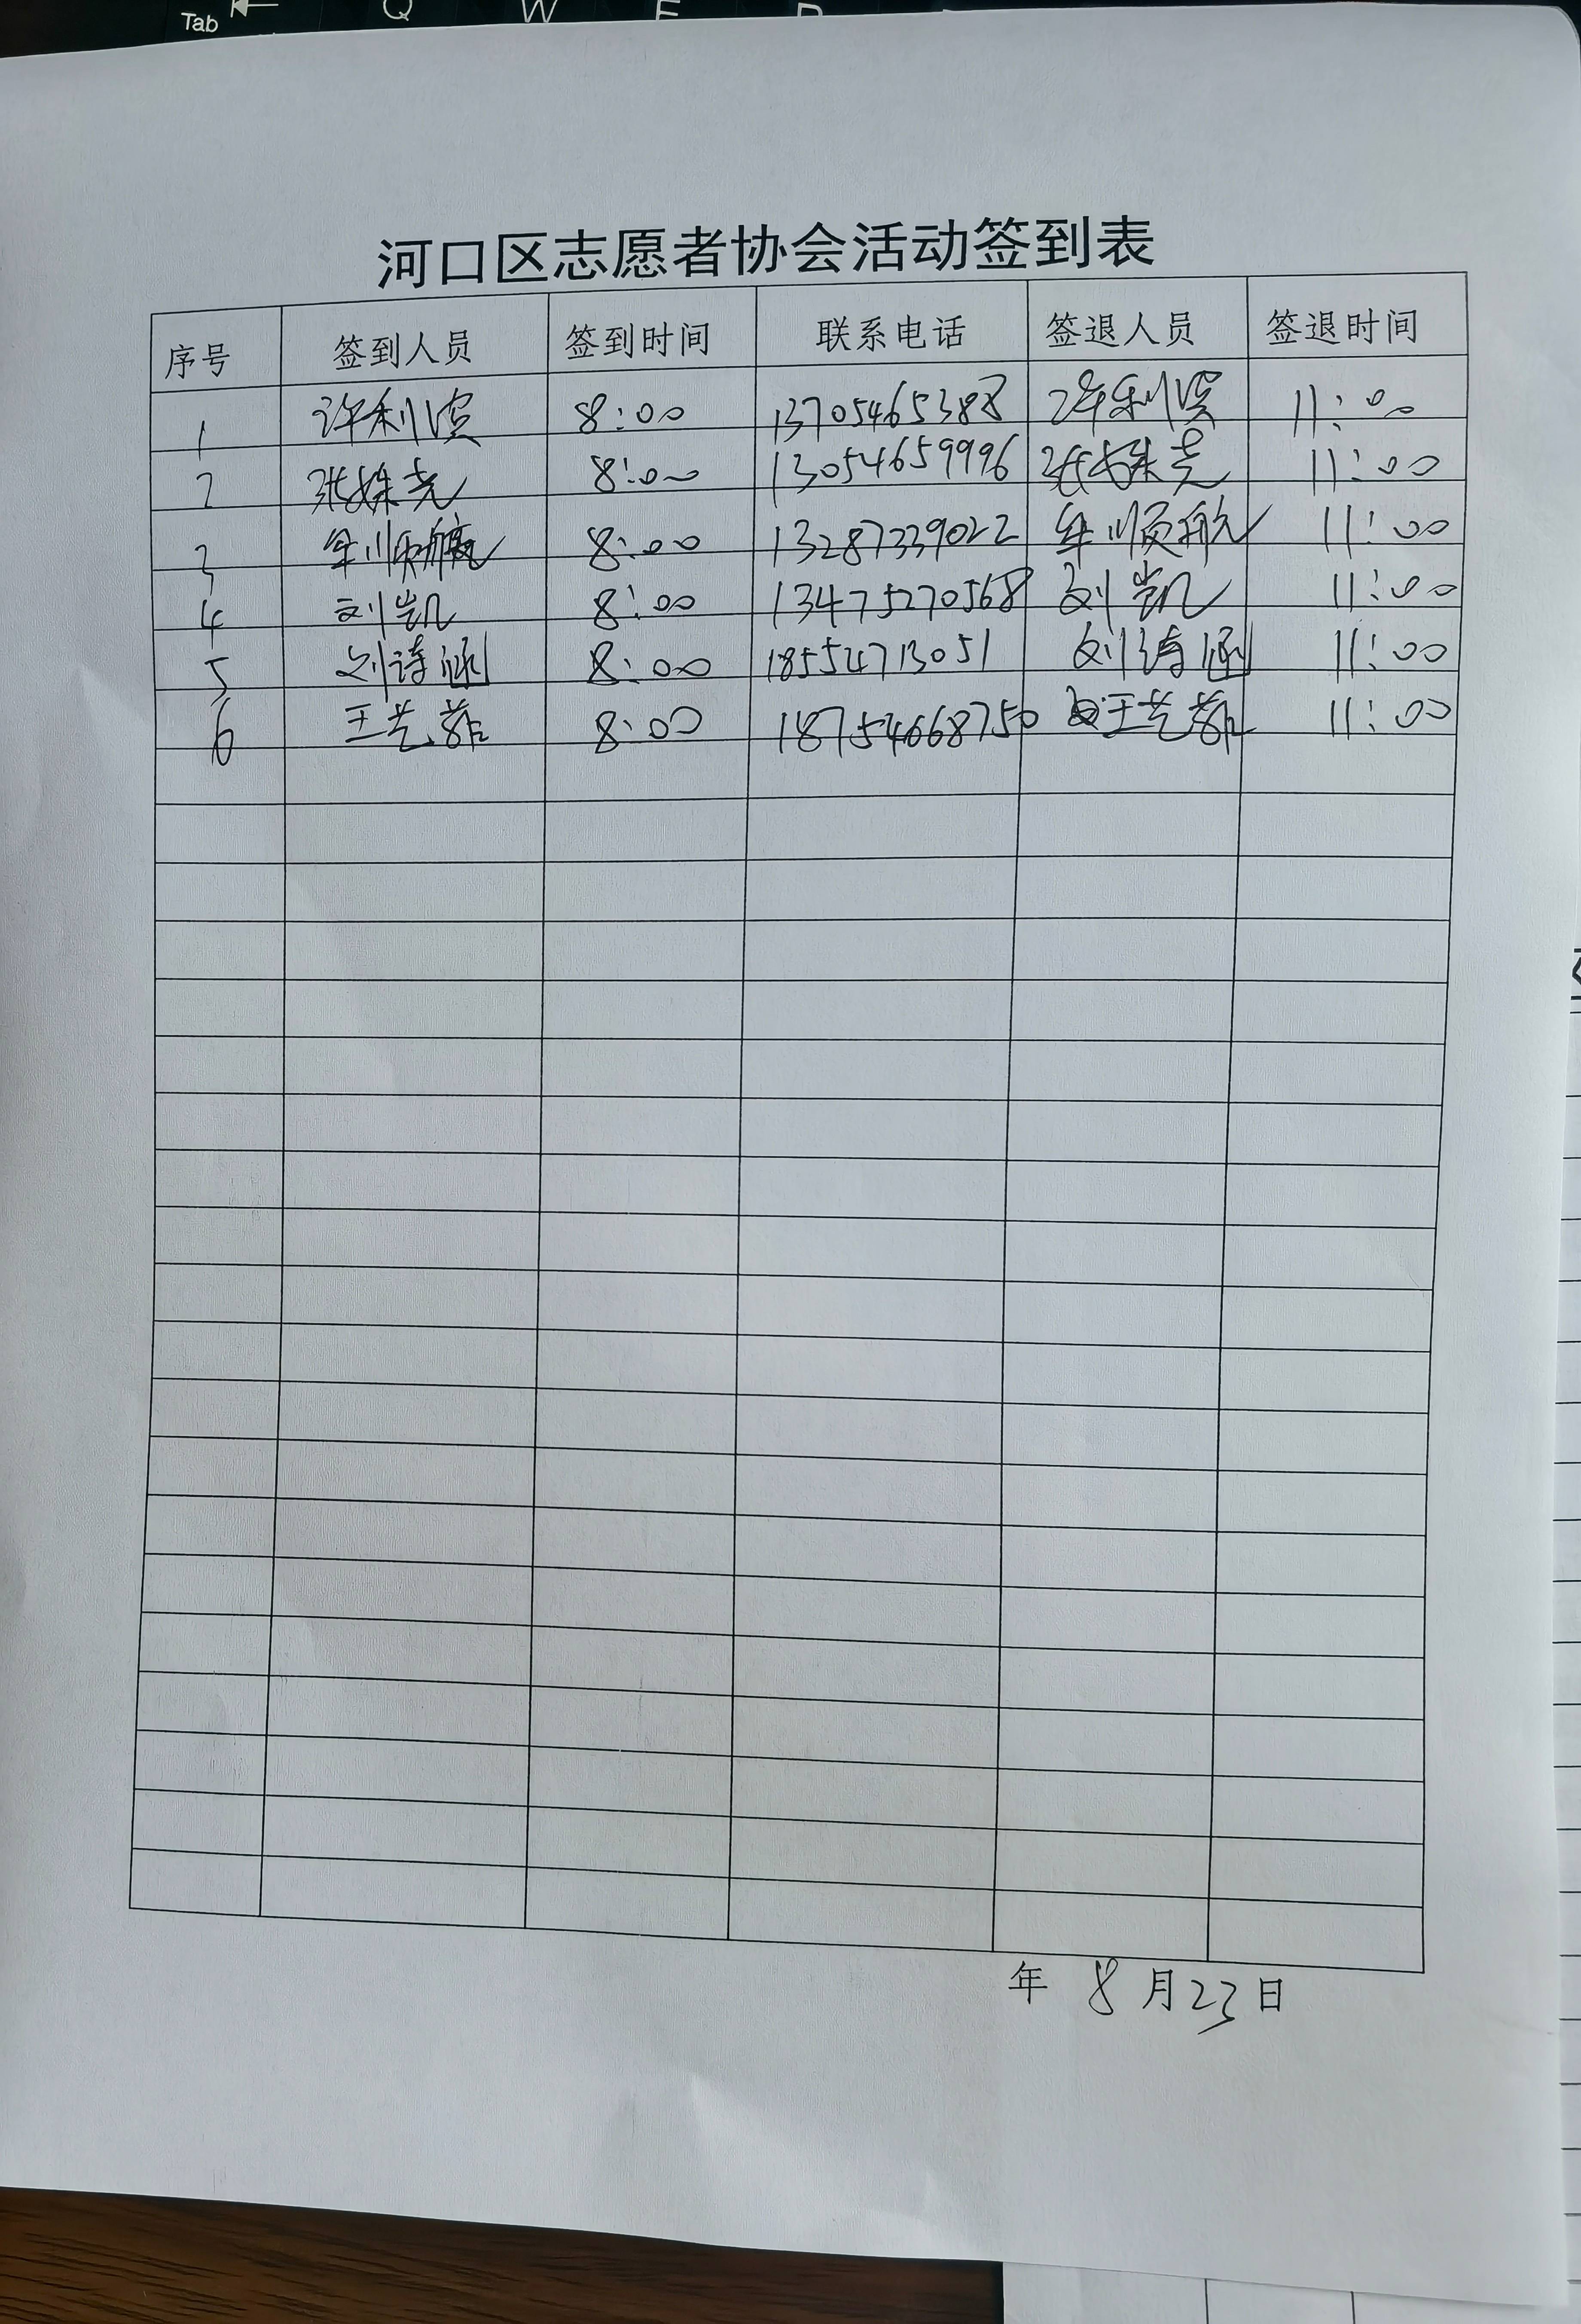 Tab Q W E R
河口区志愿者协会活动签到表
序号 签到人员 签到时间 联系电话 签退人员 签退时间
1 许利滨 8:00 13705465388 许利滨 11:00
2 张姝尧 8:00 13054659996 张姝尧 11:00
3 牟顺航 8:00 13287339022 牟顺航 11:00
4 刘凯 8:00 13475270568 刘凯 11:00
5 刘诗涵 8:00 18554713051 刘诗涵 11:00
6 王艺 8:00 18754668750 王艺 11:00
年 8 月 23 日